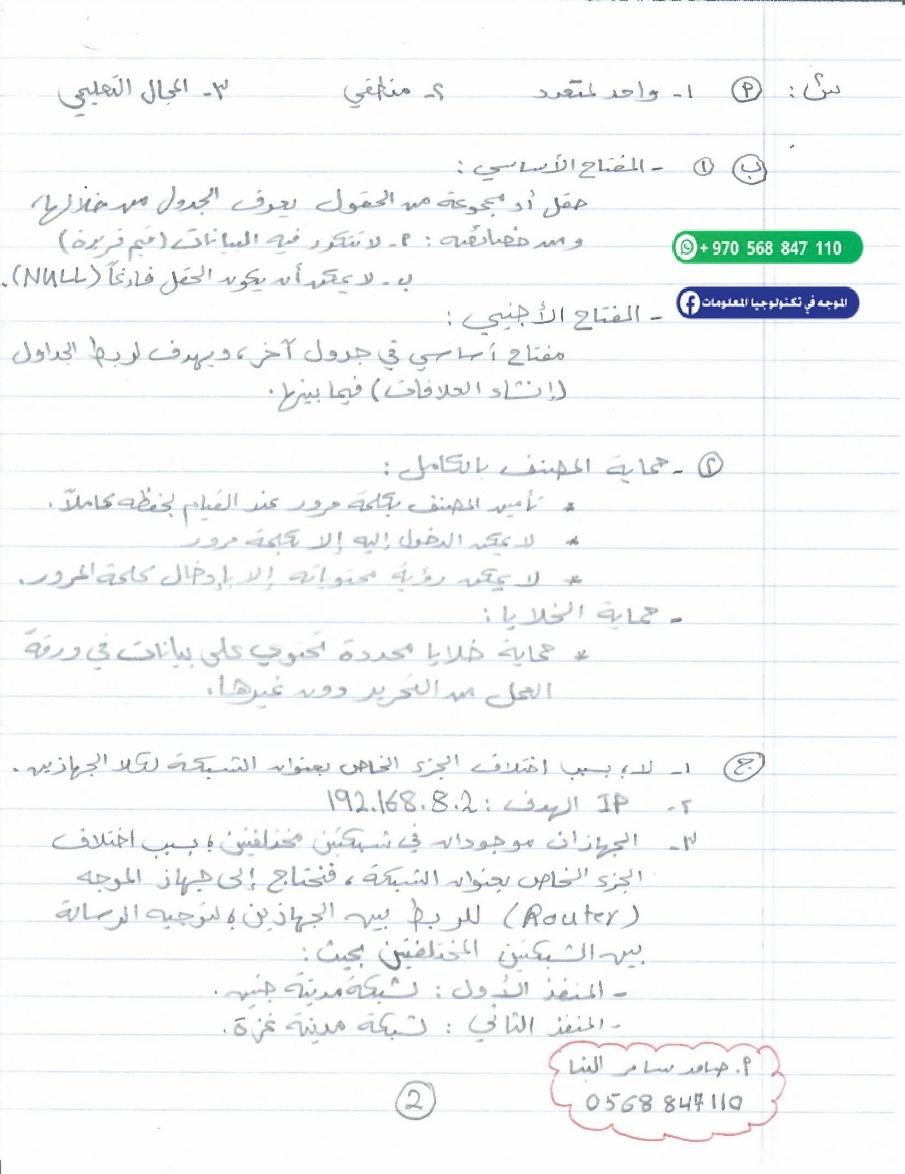 س: أ ١- واحد لمتعدد ٢- منطقي ٣- المجال التعليمي
ب ١ - المفتاح الأساسي:
حقل أو مجموعة من الحقول يعرف الجدول من خلالها،
ومن خصائصه: أ- لا تتكرر فيه البيانات (قيم فريدة)
+ 970 568 847 110
ب- لا يمكن أن يكون الحقل فارغاً (NULL).
الموجه في تكنولوجيا المعلومات
- المفتاح الأجنبي:
مفتاح أساسي في جدول آخر، ويهدف لربط الجداول
(إنشاء العلاقات) فيما بينها.
٢ - حماية المصنف بالكامل:
* تأمين المصنف بكلمة مرور عند القيام بحفظه كاملاً.
* لا يمكن الدخول إليه إلا بكلمة مرور
* لا يمكن رؤية محتوياته إلا بإدخال كلمة المرور.
- حماية الخلايا:
* حماية خلايا محددة تحتوي على بيانات في ورقة
العمل من التحرير دون غيرها.
ج ١- لا، بسبب اختلاف الجزء الخاص بعنوان الشبكة لكلا الجهازين.
٢- IP الهدف: 192.168.8.2
٣- الجهازان موجودان في شبكتين مختلفتين، بسبب اختلاف
الجزء الخاص بعنوان الشبكة، فنحتاج إلى جهاز الموجه
(Router) للربط بين الجهازين، لتوجيه الرسالة
بين الشبكتين المختلفتين بحيث:
- المنفذ الأول: لشبكة مدينة جنين.
- المنفذ الثاني: لشبكة مدينة غزة.
أ. حامد سامر البنا
0568 847 110
2